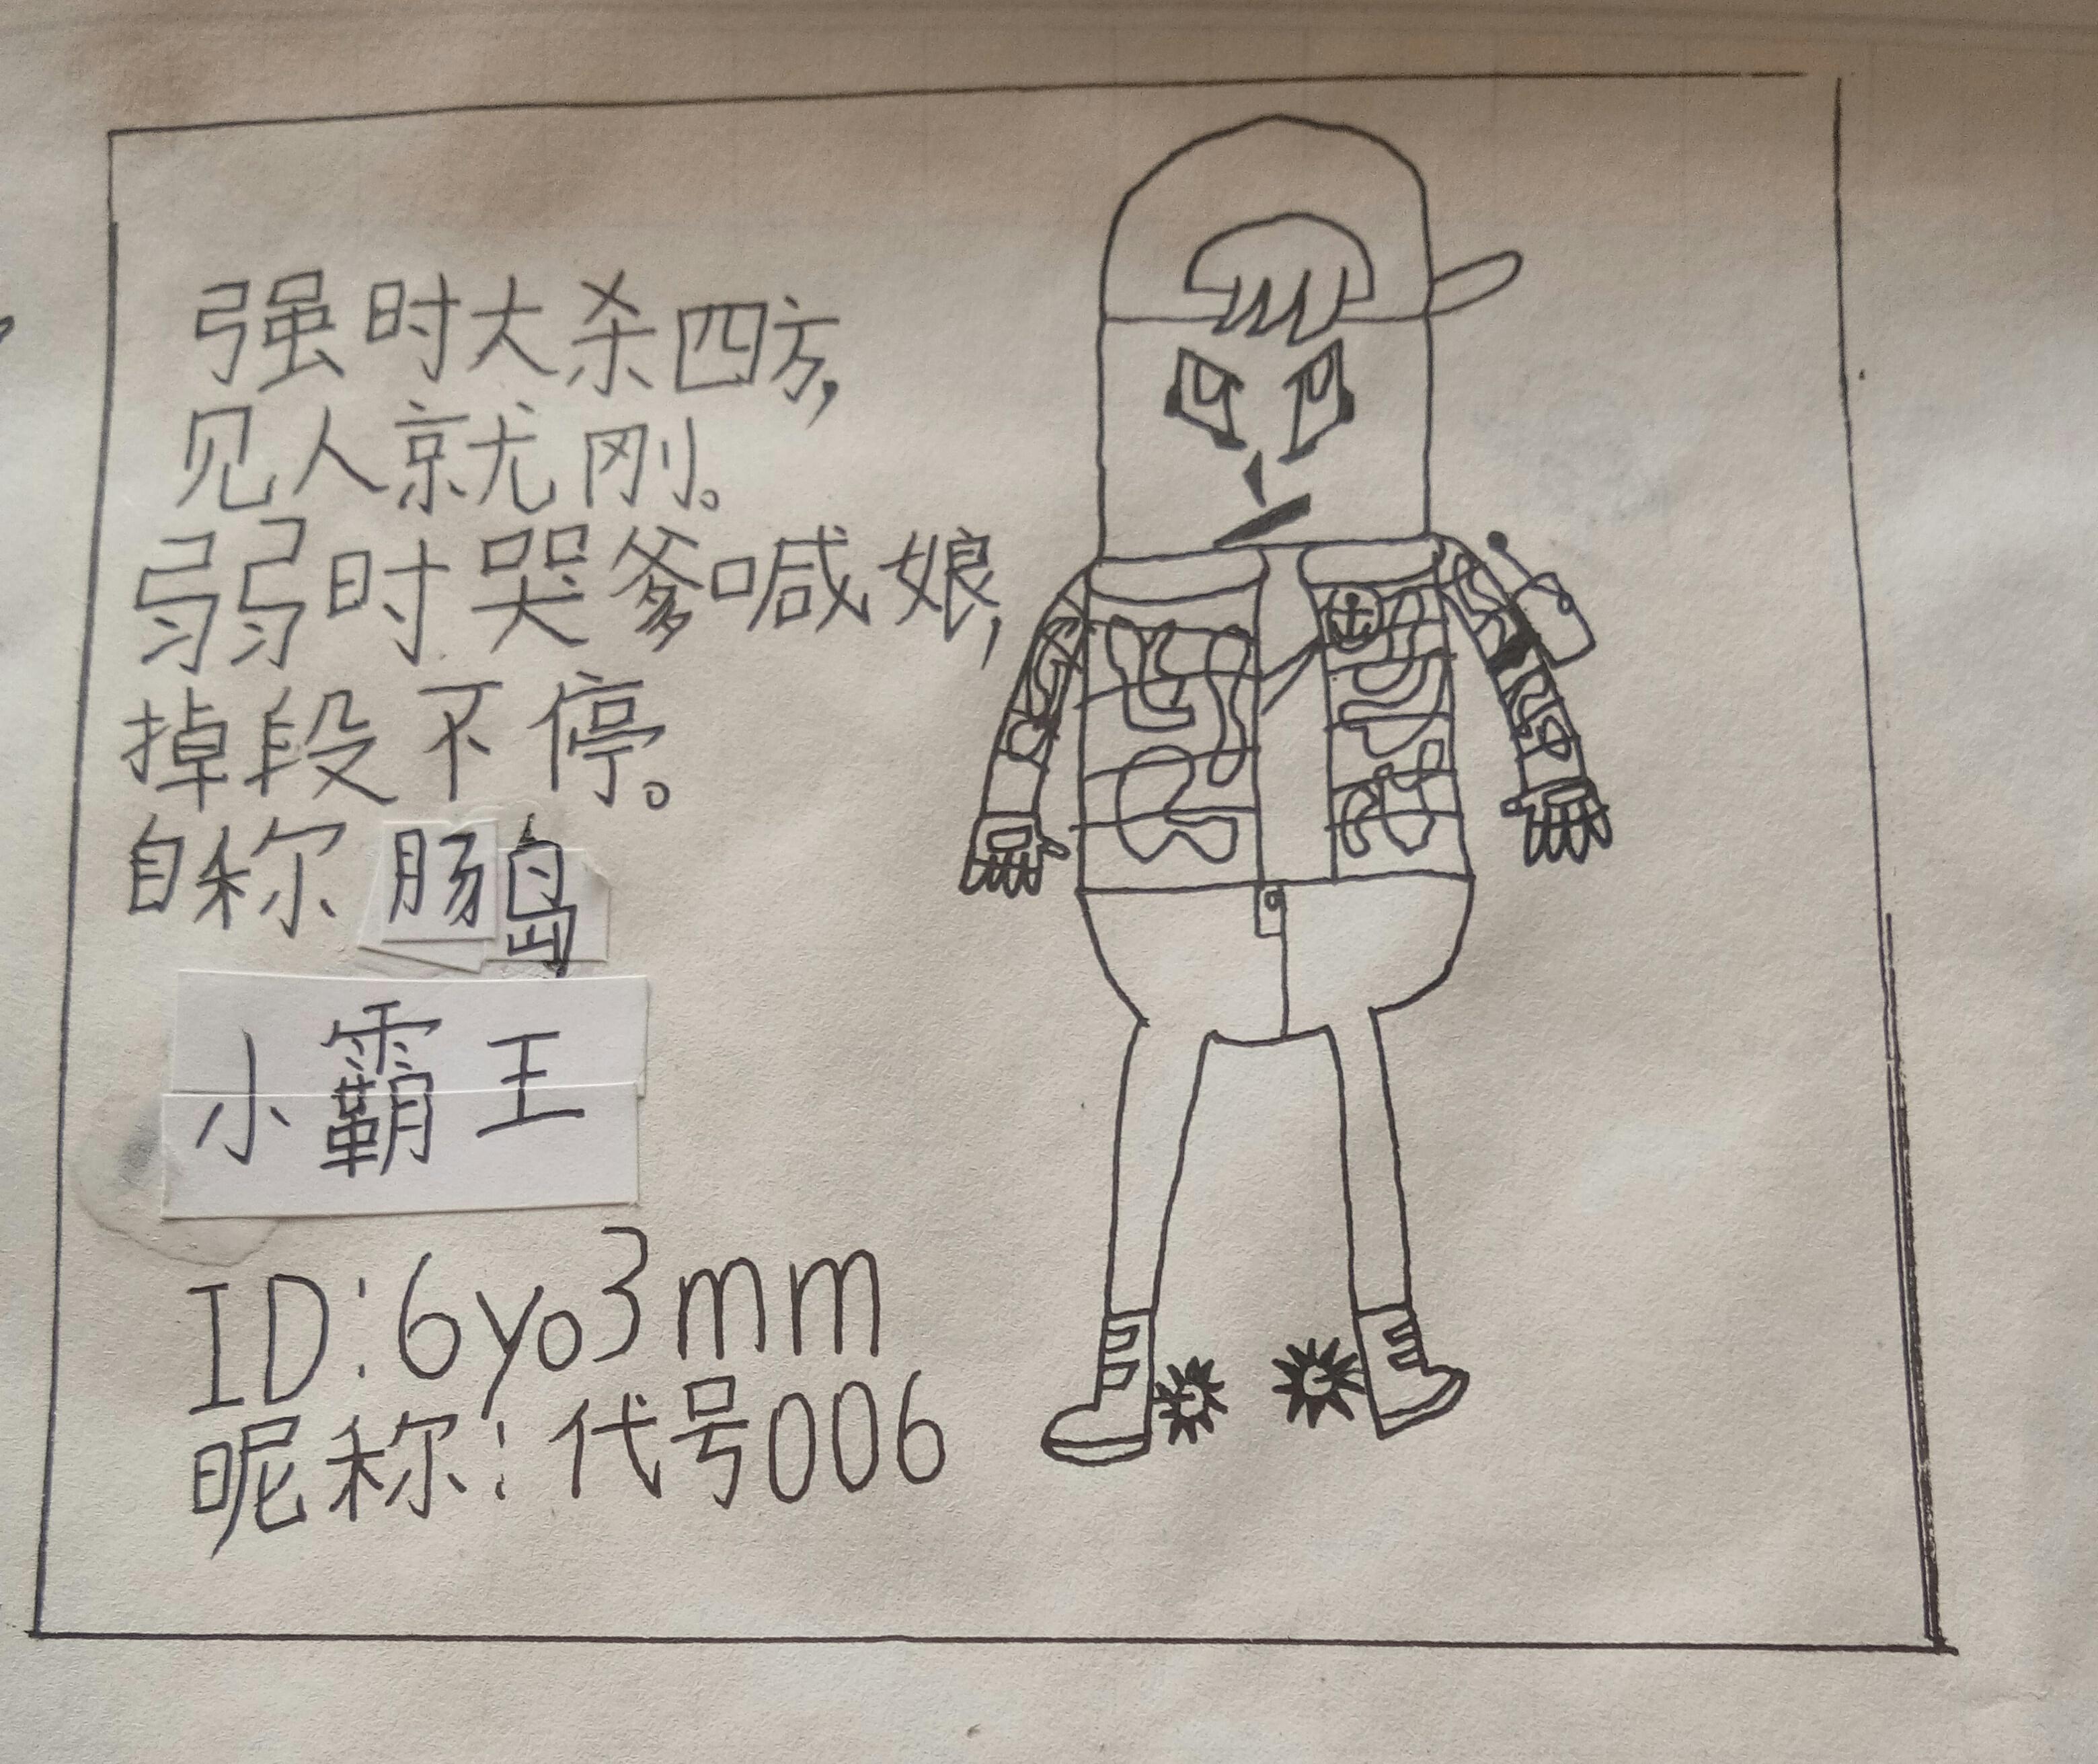 强时大杀四方,
见人就刚。
弱时哭爹喊娘,
掉段不停。
自称肠岛
小霸王
ID:6yo3mm
昵称:代号006